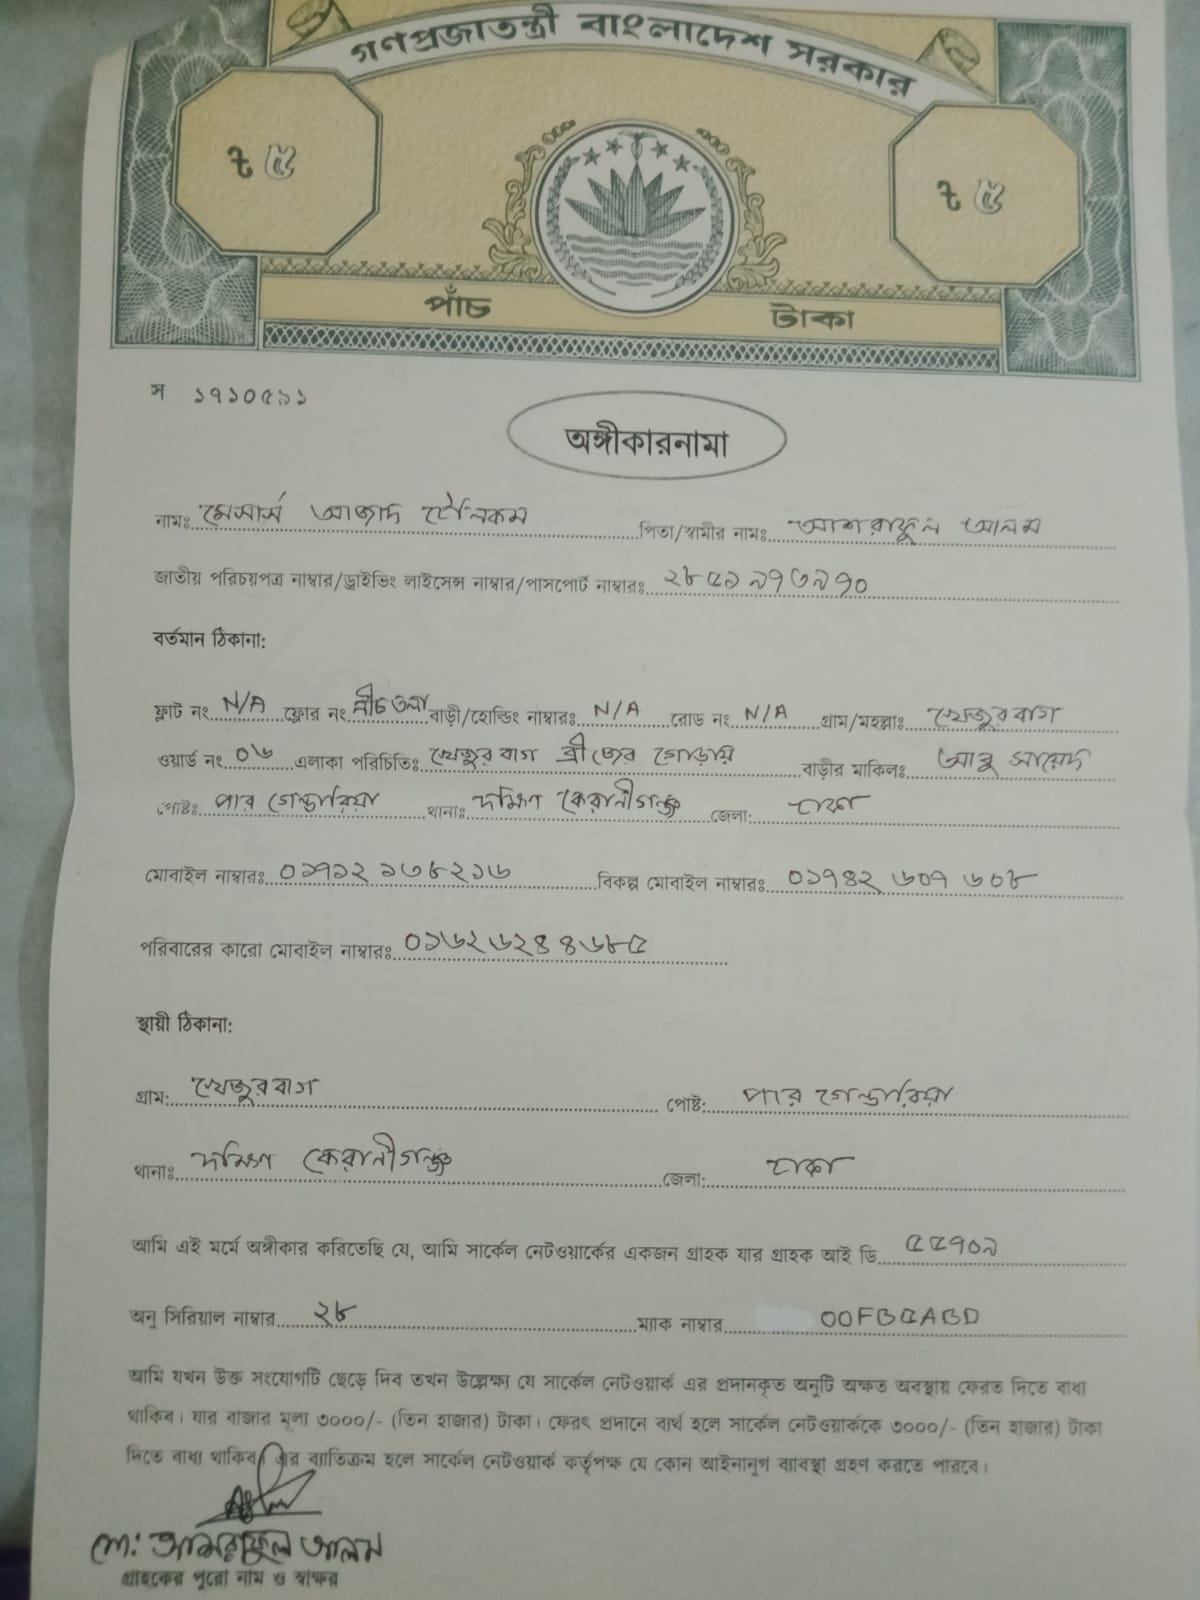 গণপ্রজাতন্ত্রী বাংলাদেশ সরকার
৳ ৫ ৳ ৫
পাঁচ টাকা
স ১৭১০৫৯১
অঙ্গীকারনামা
নামঃ মেসার্স আজাদ টেলিকম পিতা/স্বামীর নামঃ আশরাফুল আলম
জাতীয় পরিচয়পত্র নাম্বার/ড্রাইভিং লাইসেন্স নাম্বার/পাসপোর্ট নাম্বারঃ ২৮৫৯৯৭৩৯৭০
বর্তমান ঠিকানা:
ফ্লাট নং N/A ফ্লোর নং নীচতলা বাড়ী/হোল্ডিং নাম্বারঃ N/A রোড নং N/A গ্রাম/মহল্লাঃ খেজুরবাগ
ওয়ার্ড নং ০৬ এলাকা পরিচিতিঃ খেজুরবাগ ব্রীজের গোড়ায় বাড়ীর মাকিলঃ আবু সায়েদ
পোষ্টঃ পার গেন্ডারিয়া থানাঃ দক্ষিণ কেরানীগঞ্জ জেলা: ঢাকা
মোবাইল নাম্বারঃ ০১৭১২ ১৩৮২১৬ বিকল্প মোবাইল নাম্বারঃ ০১৭৪২ ৬০৭ ৬০৮
পরিবারের কারো মোবাইল নাম্বারঃ ০১৬২৬২৪৪৬৮৫
স্থায়ী ঠিকানা:
গ্রাম: খেজুরবাগ পোষ্ট: পার গেন্ডারিয়া
থানাঃ দক্ষিণ কেরানীগঞ্জ জেলা: ঢাকা
আমি এই মর্মে অঙ্গীকার করিতেছি যে, আমি সার্কেল নেটওয়ার্কের একজন গ্রাহক যার গ্রাহক আই ডি ৫৫৭০৯
অনু সিরিয়াল নাম্বার ২৮ ম্যাক নাম্বার 00FB5ABD
আমি যখন উক্ত সংযোগটি ছেড়ে দিব তখন উল্লেক্ষ্য যে সার্কেল নেটওয়ার্ক এর প্রদানকৃত অনুটি অক্ষত অবস্থায় ফেরত দিতে বাধ্য
থাকিব। যার বাজার মূল্য ৩০০০/- (তিন হাজার) টাকা। ফেরৎ প্রদানে ব্যর্থ হলে সার্কেল নেটওয়ার্ককে ৩০০০/- (তিন হাজার) টাকা
দিতে বাধ্য থাকিব। এর ব্যাতিক্রম হলে সার্কেল নেটওয়ার্ক কর্তৃপক্ষ যে কোন আইনানুগ ব্যাবস্থা গ্রহণ করতে পারবে।
মো: আশরাফুল আলম
গ্রাহকের পুরো নাম ও স্বাক্ষর